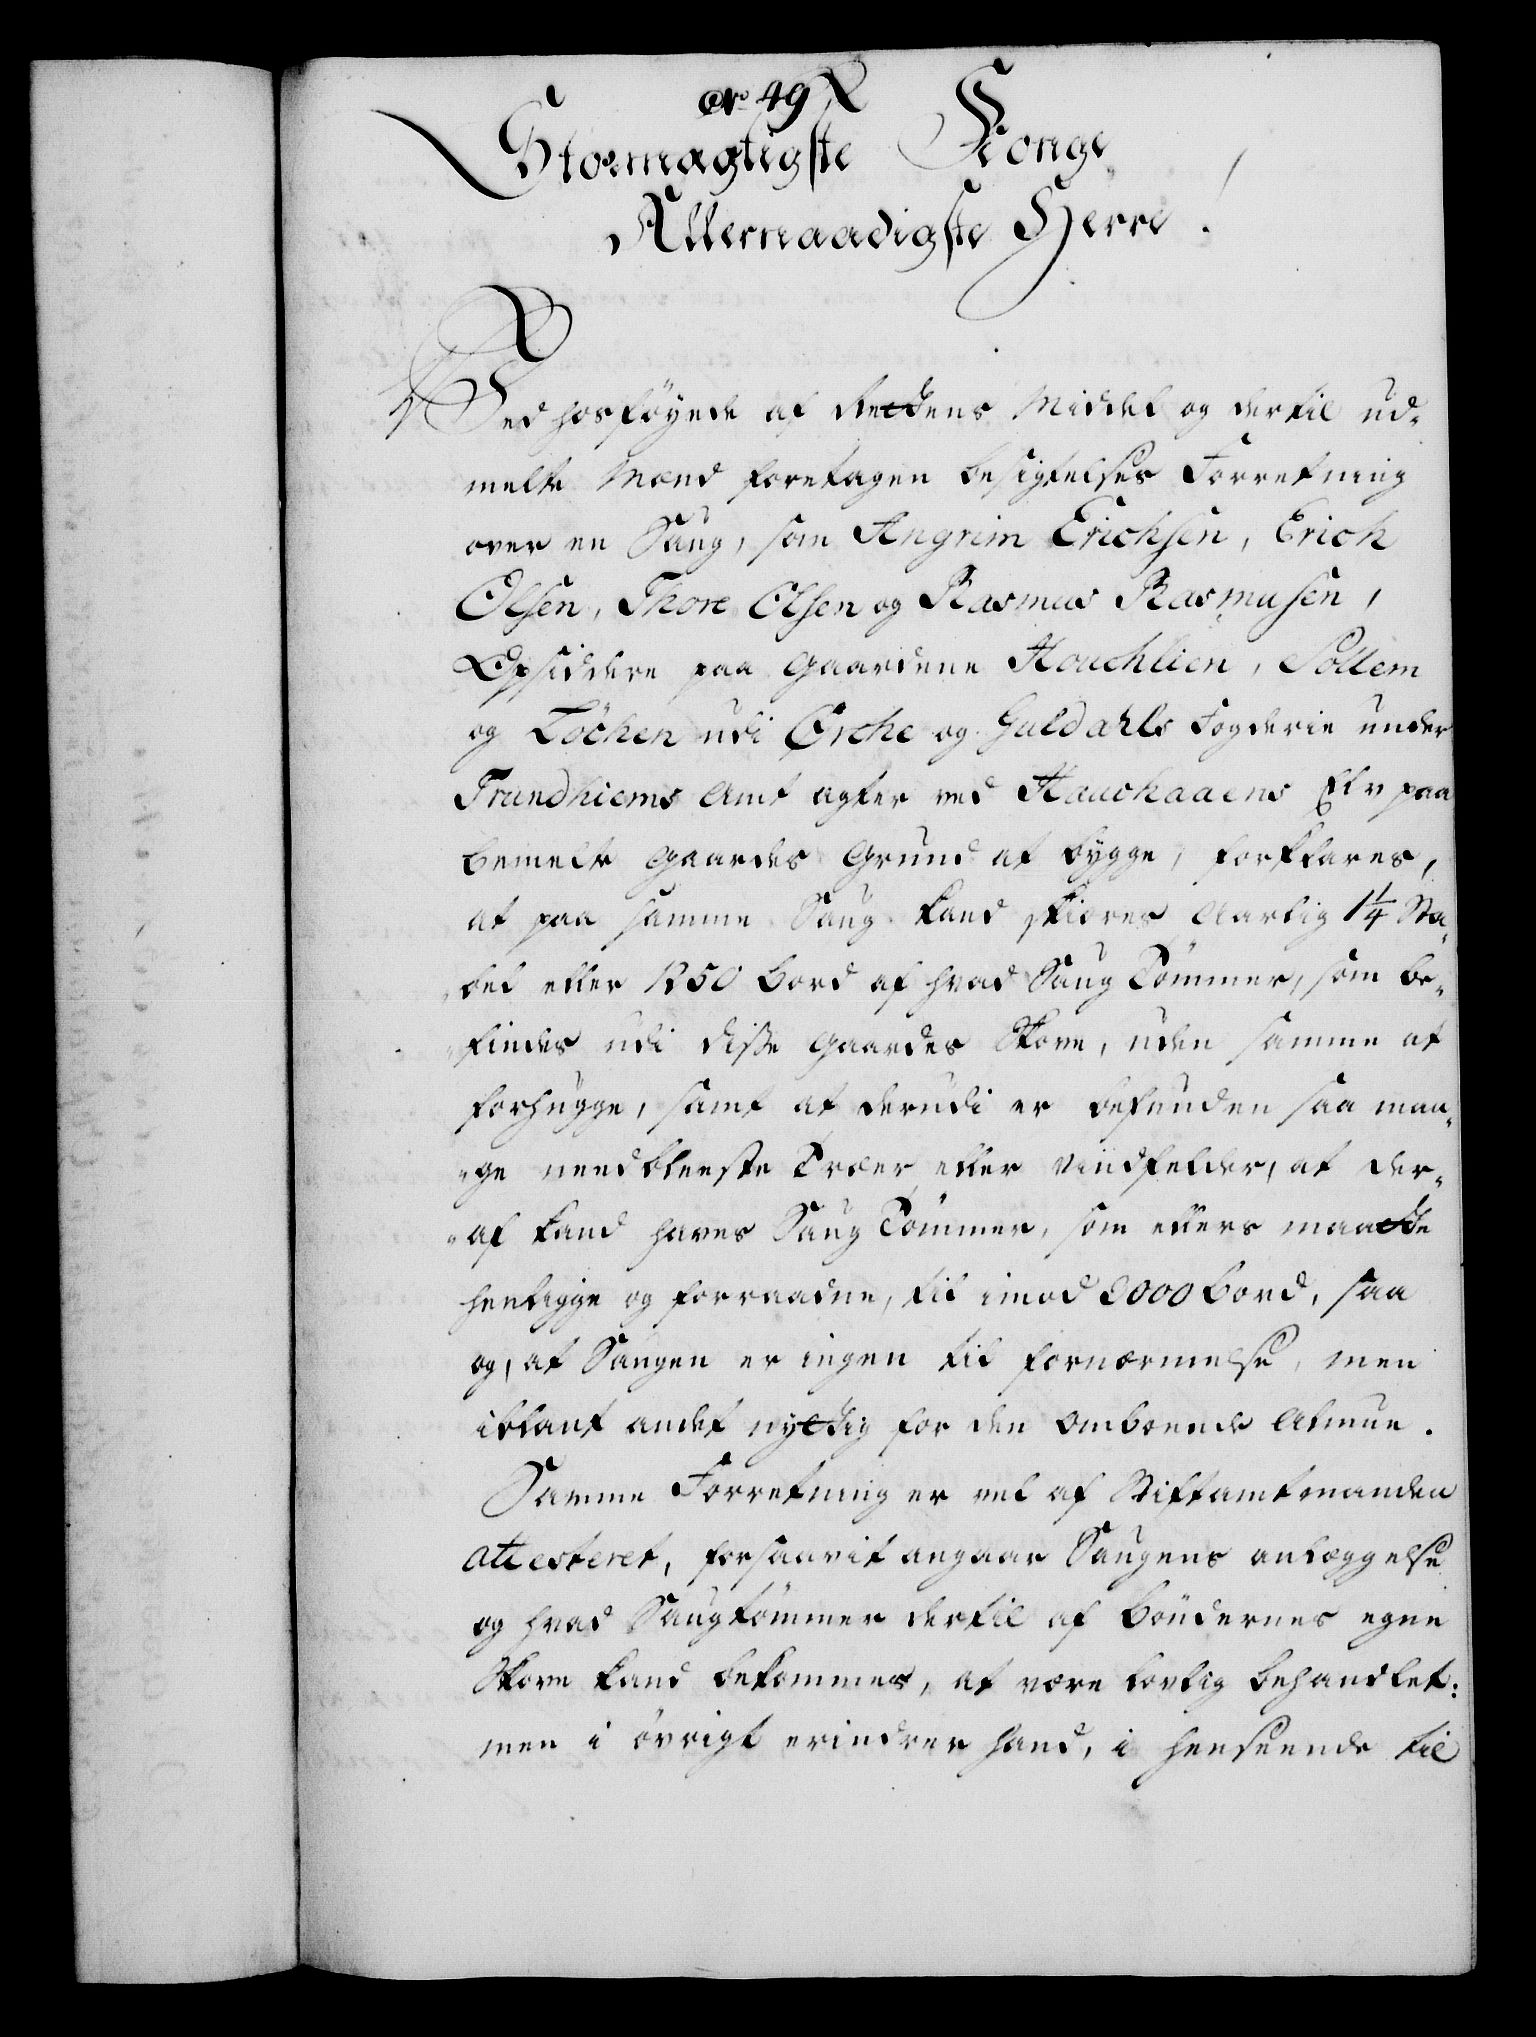 No 49
Stormægtigste Konge
Allernaadigste Herre!
Ved hosføyede af Rettens Middel og dertil ud-
melte Mænd foretagen besigtelses Forretning
over en Saug, som Angrim Erichsen, Erich
Olsen, Thore Olsen og Rasmus Rasmusen,
Opsiddere paa Gaardene Houchlien, Sollem
og Löchen udi Örche og Guldahls Fogderie under
Trundhiems Amt agter ved Hauchaaens Elv paa
bemelte Gaardes Grund at bygge, forklares,
at paa samme Saug kand skiæres Aarlig 1 1/4 Sta-
bel eller 1250 Bord af hvad Saug Tømmer, som be-
findes udi disse Gaardes Skove, uden samme at
forhugge, samt at derudi er befunden saa man-
ge needblæste Træer eller Vindfelder, at der-
af kand haves Saug Tømmer, som ellers maatte
henligge og forraadne, til imod 2000 Bord, saa
og, at Saugen er ingen til fornærmelse, men
iblant andet nyttig for den omboende Almue.
Samme Forretning er vel af Stiftamtmanden
attesteret, forsaavit angaar Saugens anlæggelse
og hvad Saugtømmer dertil af Bøndernes egne
Skove kand bekommes, at være lovlig behandlet:
men i øvrigt erindrer hand, i henseende til